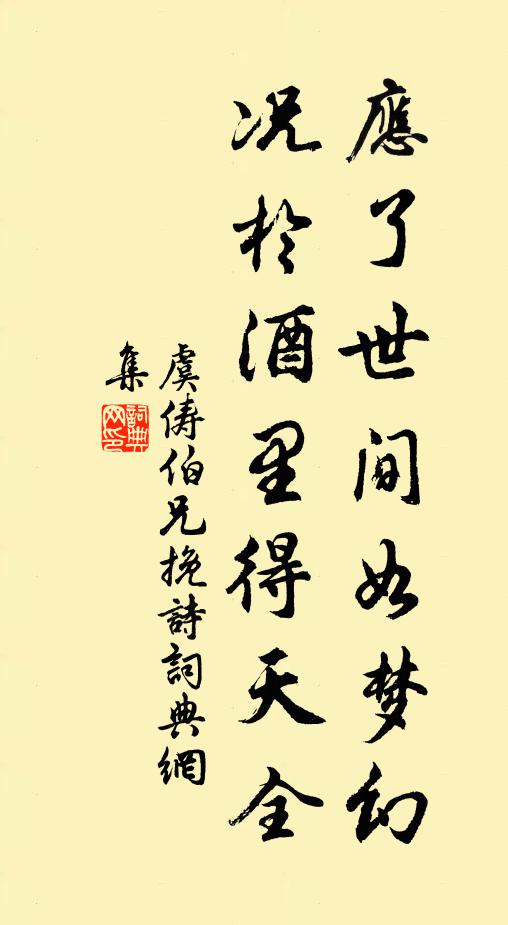 應了世间如梦幻
况於酒里得天全
虞俦伯兄挽詩詞典網
集
詞典网印